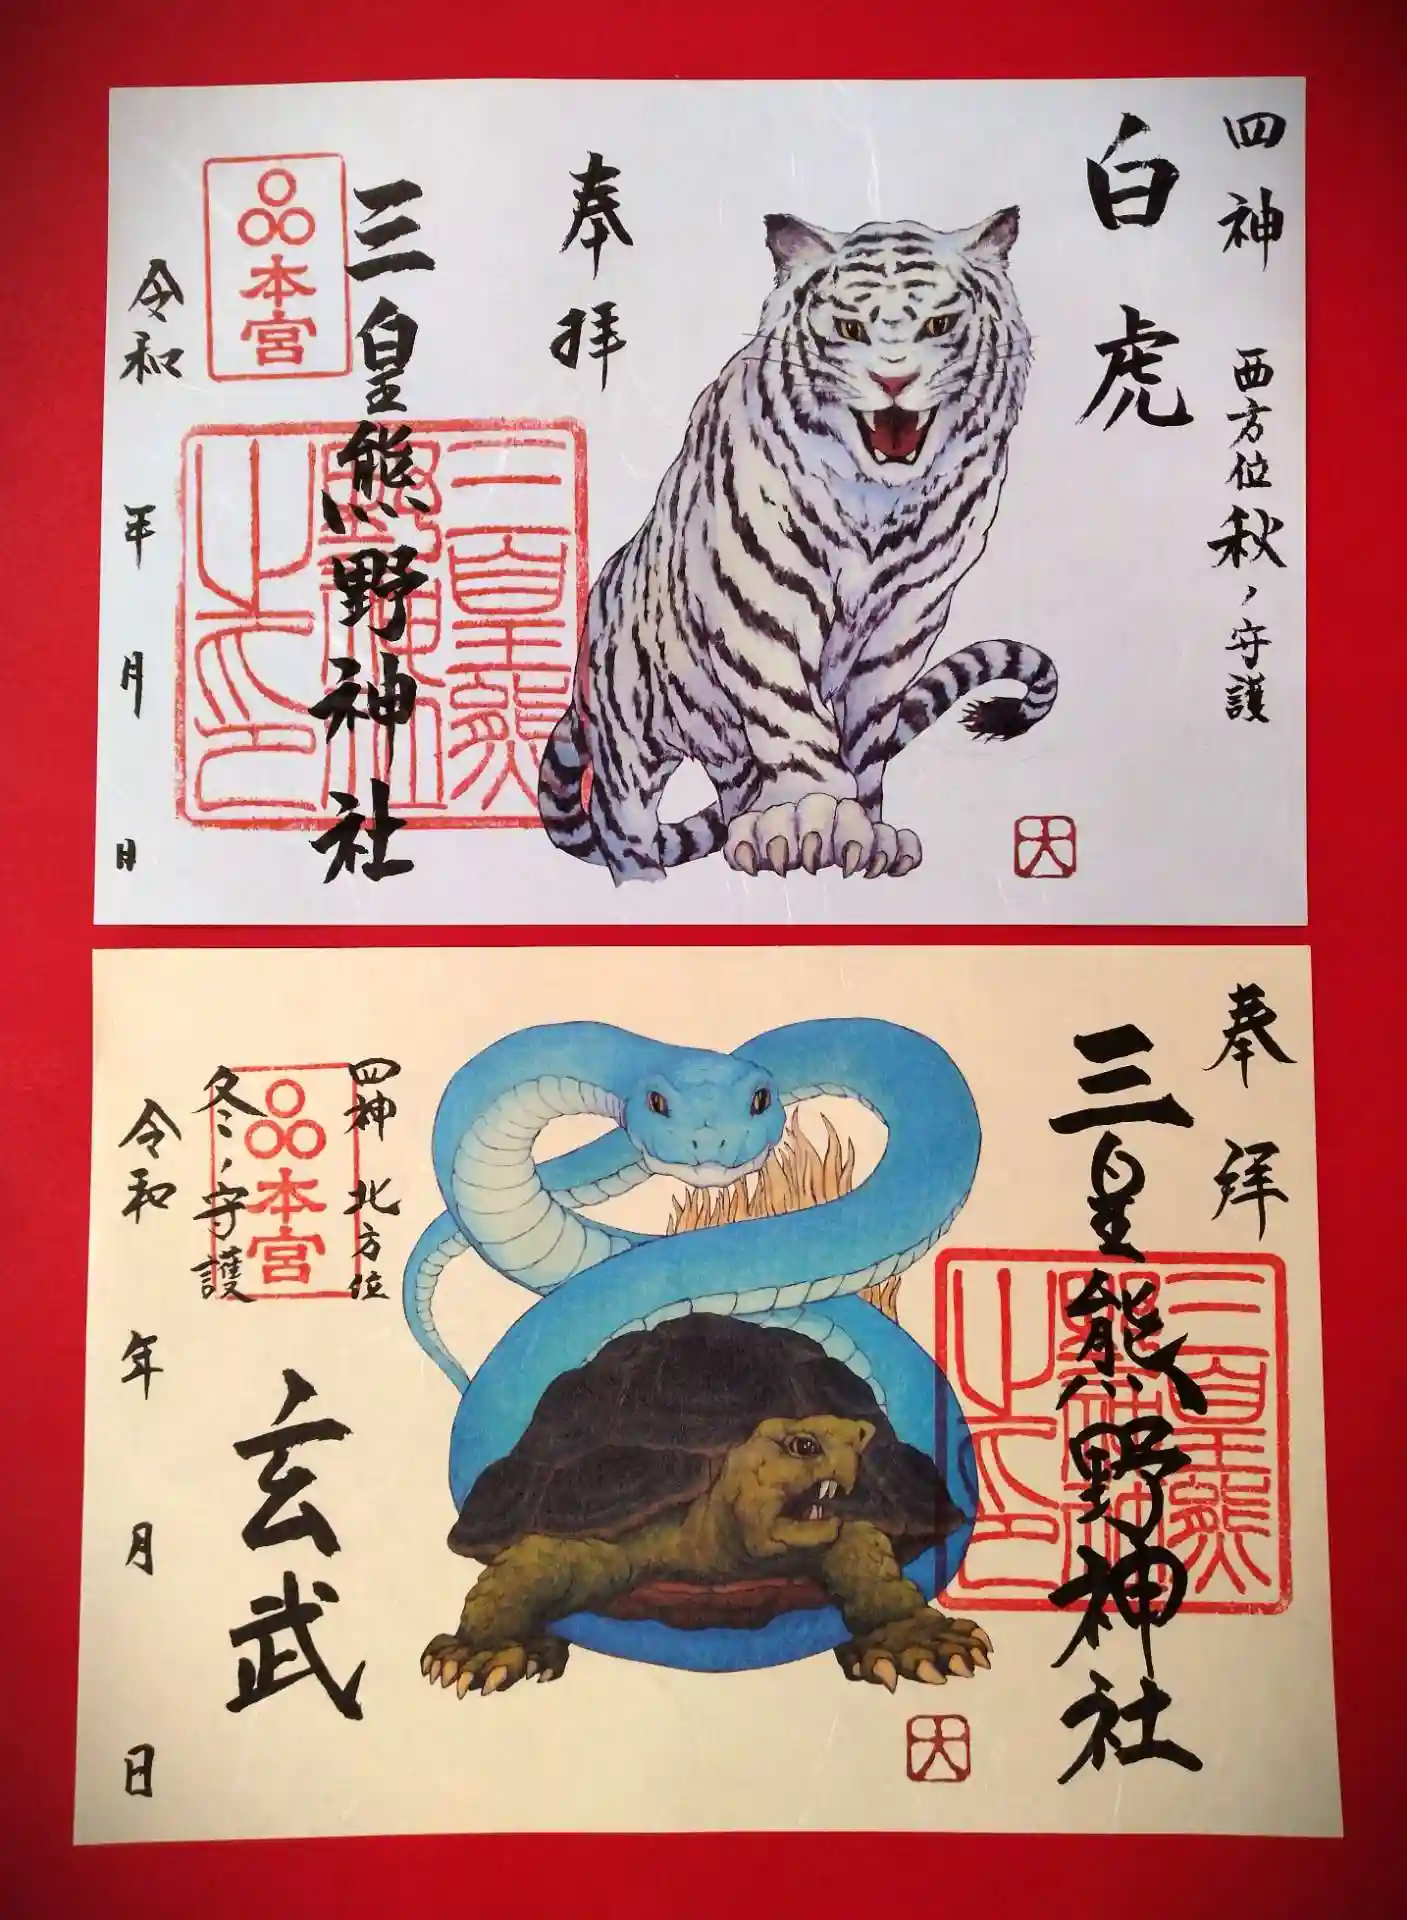 四神 西方位秋ノ守護
白虎
奉拝
三皇熊野神社
本宮
三皇熊野神社之印
令和 年 月 日
大
奉拝
三皇熊野神社
三皇熊野神社之印
四神 北方位
冬ノ守護
本宮
玄武
令和 年 月 日
大